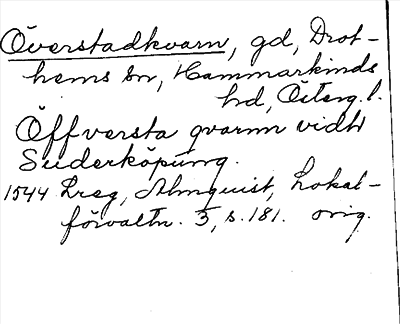 Överstadkvarn, gd, Drot-
hems sn, Hammarkinds
hd, Österg.l.
Öffversta qvarnn vidh
Suderköpung.
1544 Lreg, Almquist, Lokal-
förvaltn. 3, s. 181. orig.